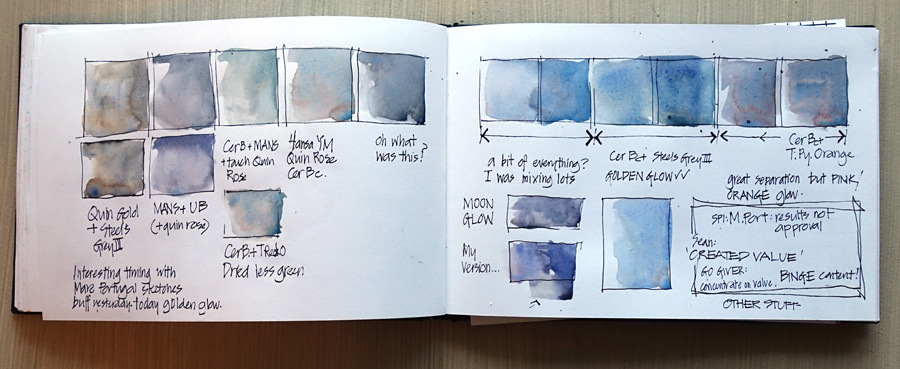 Quin Gold
+ Steels
Grey III
MANS + UB
(+quin rose)
CerB + MANS
+ touch Quin
Rose
Hansa YM
Quin Rose
CerBc.
oh what
was this?
CerB. +
Dried less green
Interesting timing with
Marc Portugal sketches
buff yesterday. today golden glow.
a bit of everything?
I was mixing lots
CerBz + Steels Grey III
GOLDEN GLOW ✓✓
CerBz +
T. Py. Orange
great separation but PINK/
ORANGE glow.
MOON
GLOW
My
Version...
SPI: M.Port: results not
approval
Sean:
'CREATED VALUE'
GO GIVER:
concentrate on value.
BINGE content!
OTHER STUFF